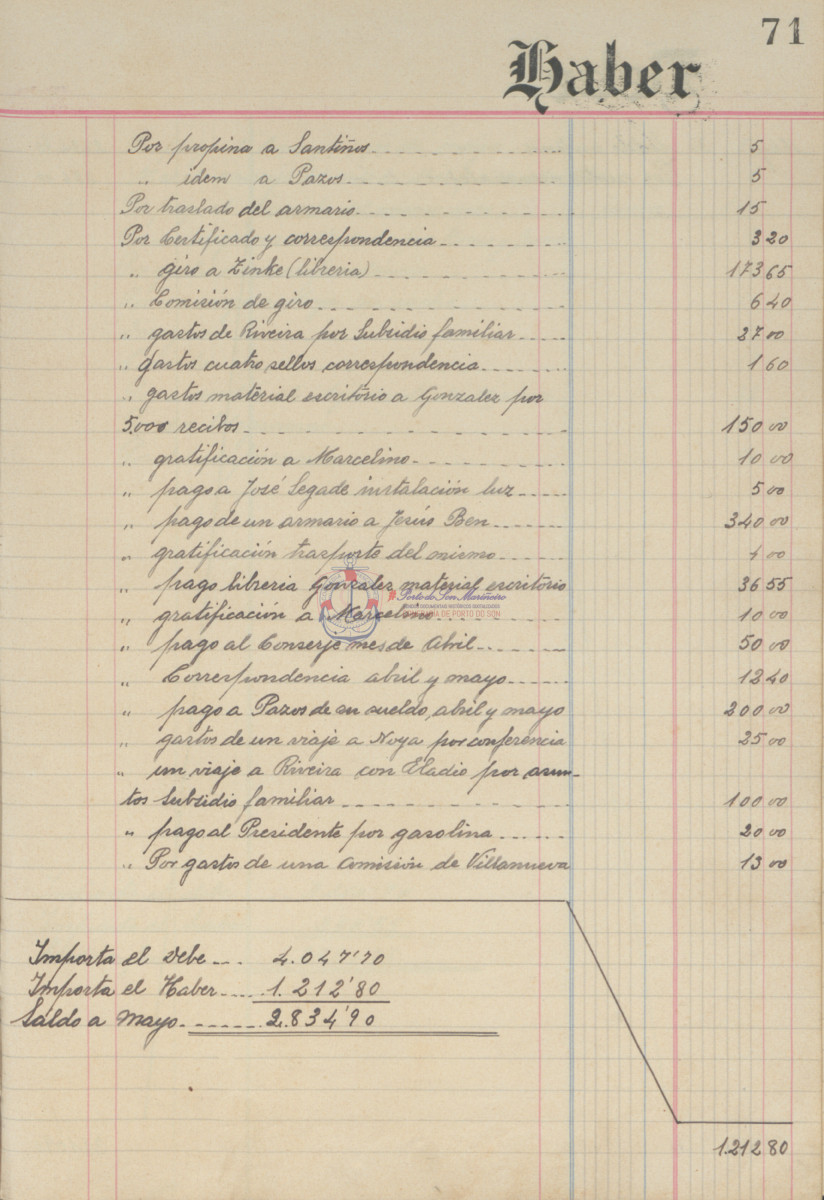 71
Haber
Por propina a Santiños 5
" idem a Pazos 5
Por traslado del armario 15
Por Certificado y correspondencia 3 20
" giro a Zinke (libreria) 173 65
" Comisión de giro 6 40
" gastos de Riveira por Subsidio familiar 27 00
" gastos cuatro sellos correspondencia 1 60
" gastos material escritorio a Gonzalez por
5.000 recibos 150 00
" gratificación a Marcelino 10 00
" pago a José Segade instalación luz 5 00
" pago de un armario a Jesús Ben 340 00
" gratificación trasporte del mismo 4 00
" pago libreria Gonzalez material escritorio 36 55
Porto do Son Mariñeiro
" gratificación a Marcelino 10 00
" pago al Conserje mes de Abril 50 00
" Correspondencia abril y mayo 12 40
" pago a Pazos de su sueldo, abril y mayo 200 00
" gastos de un viaje a Noya por conferencia 25 00
" un viaje a Riveira con Eladio por asun-
tos Subsidio familiar 100 00
" pago al Presidente por gasolina 20 00
" Por gastos de una Comisión de Villanueva 13 00
Importa el Debe 4.047'70
Importa el Haber 1.212'80
Saldo a Mayo 2.834'90
1.212 80